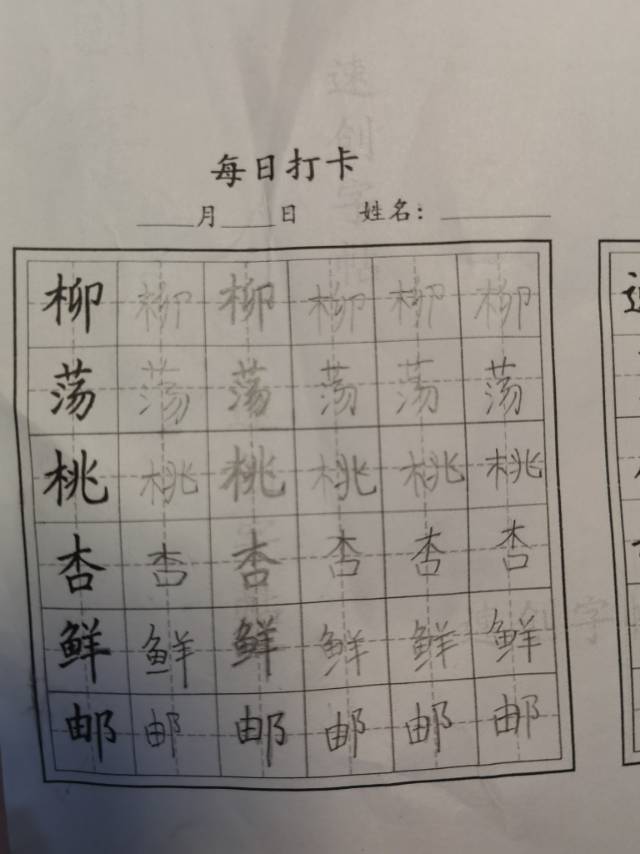 每日打卡
____月____日 姓名：________
柳柳柳柳柳柳
荡荡荡荡荡荡
桃桃桃桃桃桃
杏杏杏杏杏杏
鲜鲜鲜鲜鲜鲜
邮邮邮邮邮邮